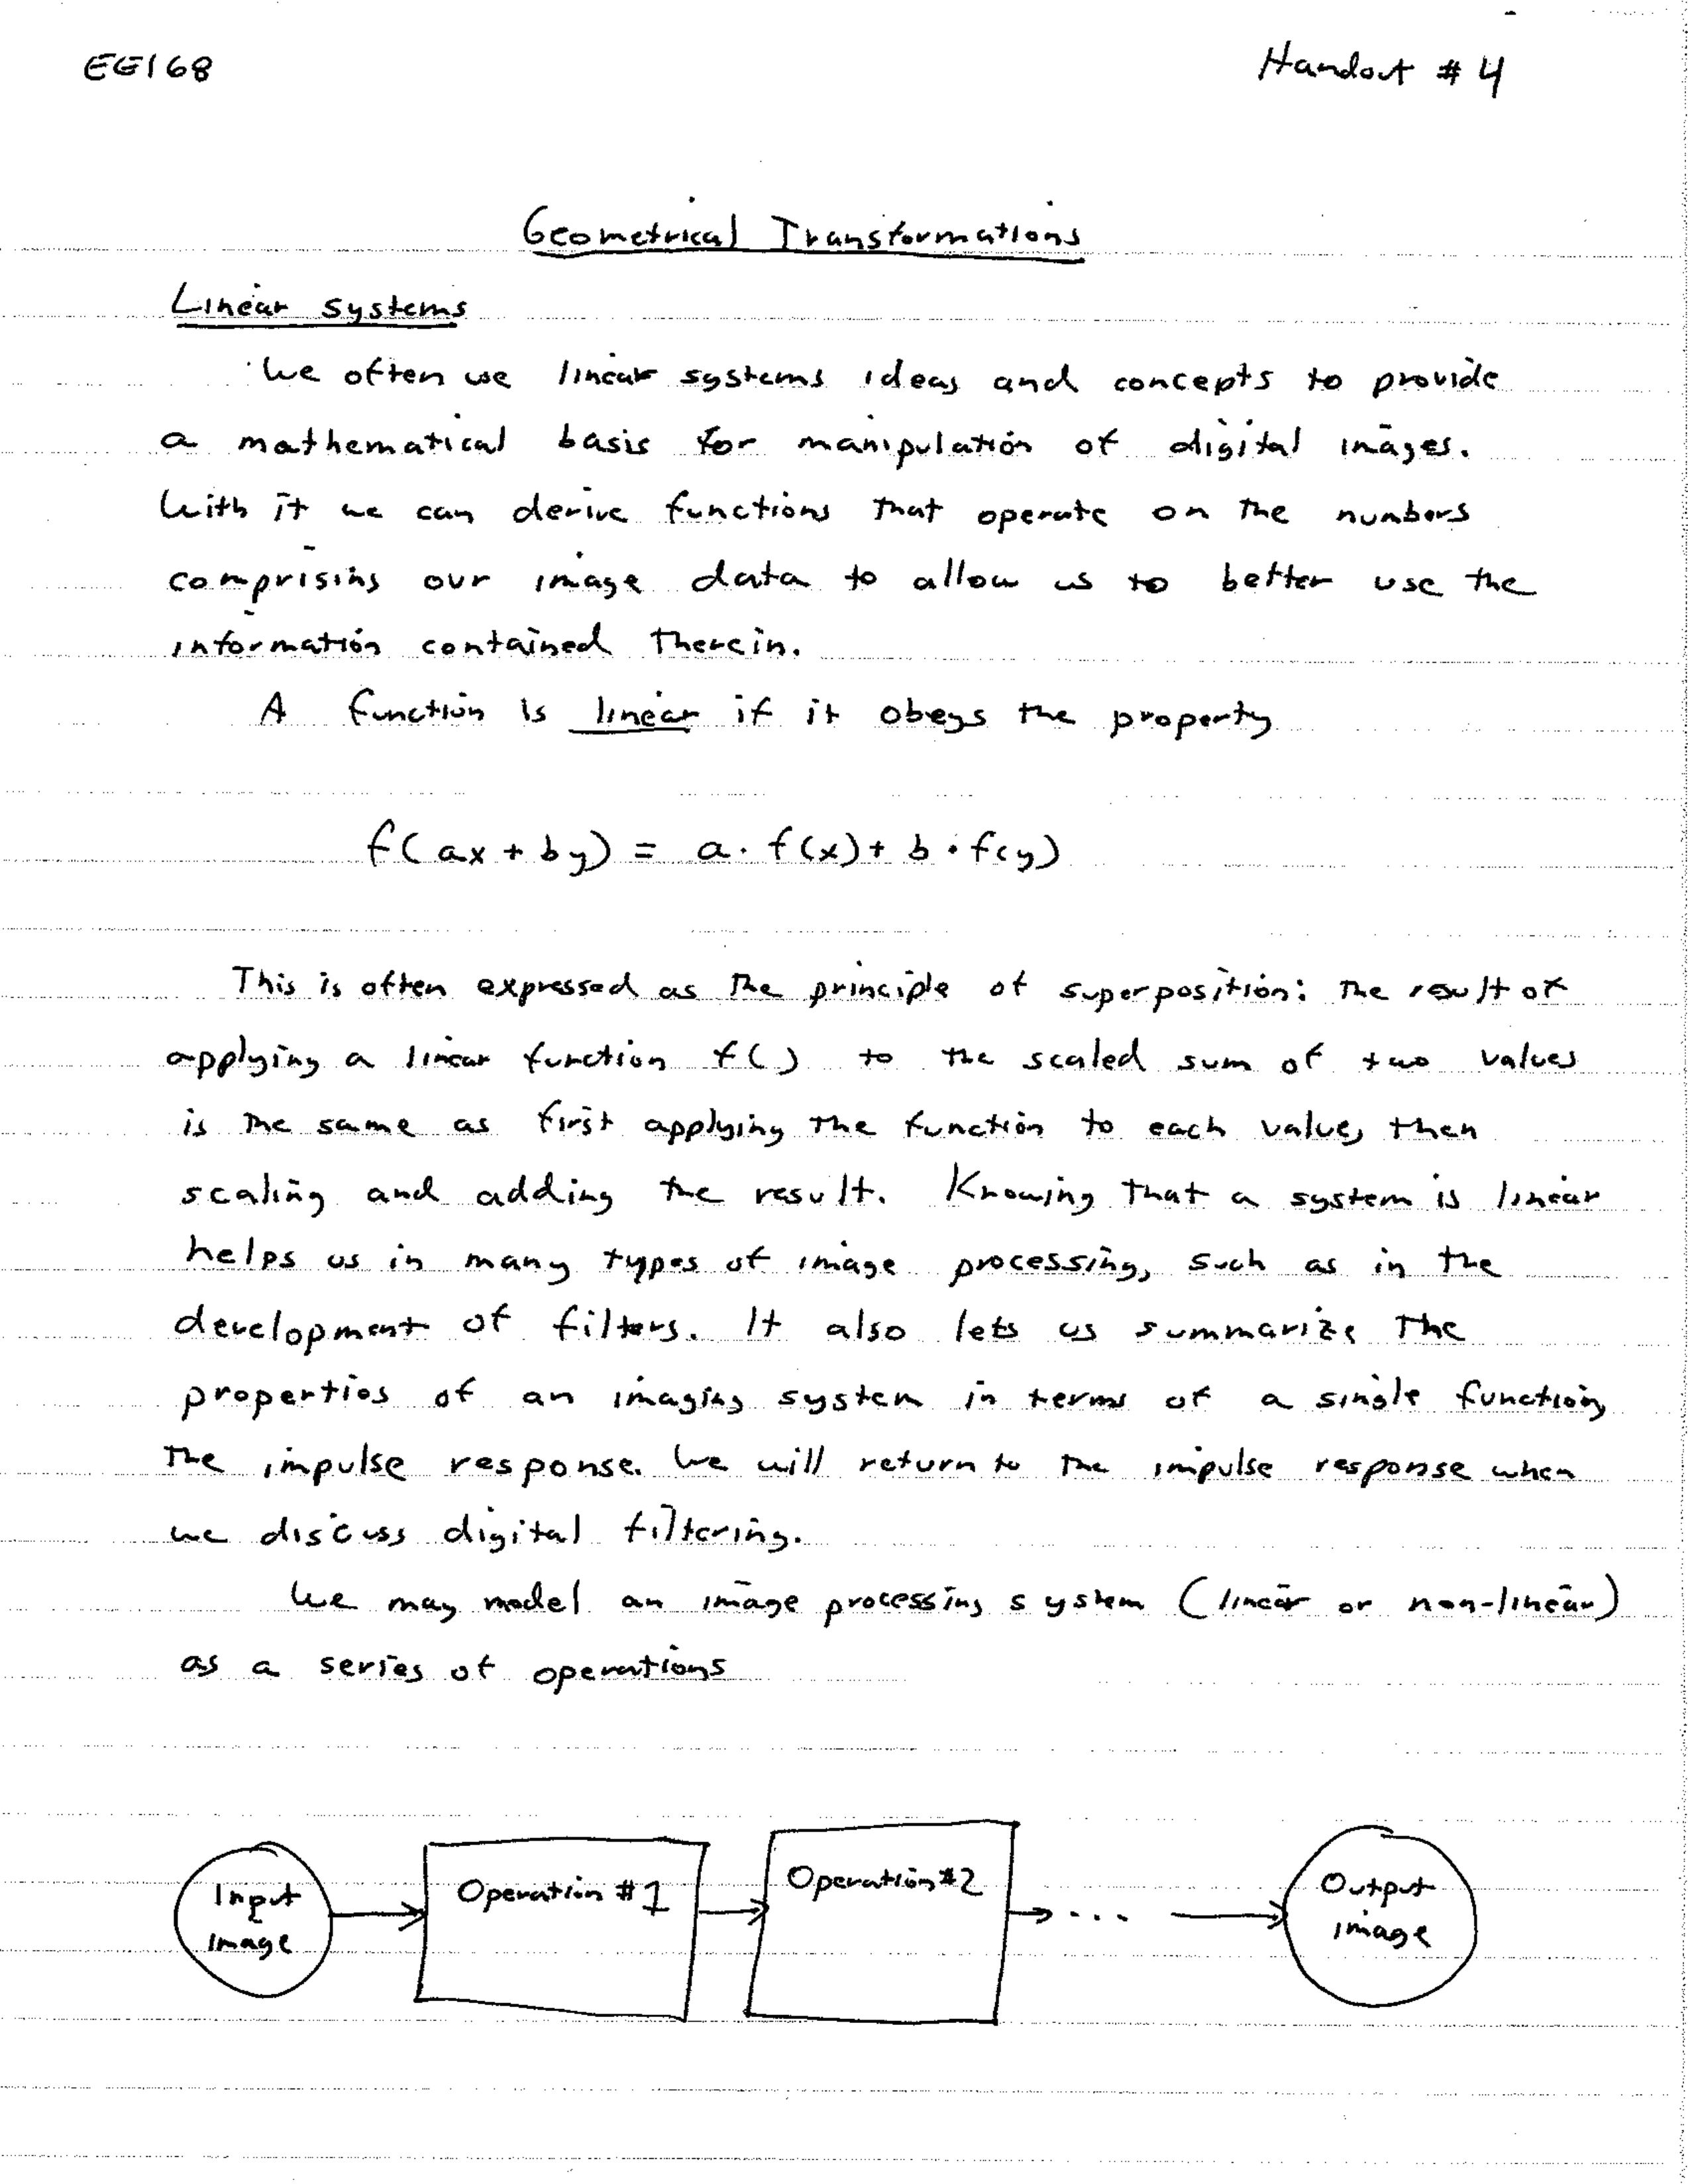 EE168
Handout # 4
Geometrical Transformations
Linear systems
We often use linear systems ideas and concepts to provide
a mathematical basis for manipulation of digital images.
With it we can derive functions that operate on the numbers
comprising our image data to allow us to better use the
information contained therein.
A function is linear if it obeys the property
f(ax + by) = a · f(x) + b · f(y)
This is often expressed as the principle of superposition: the result of
applying a linear function f( ) to the scaled sum of two values
is the same as first applying the function to each value, then
scaling and adding the result. Knowing that a system is linear
helps us in many types of image processing, such as in the
development of filters. It also lets us summarize the
properties of an imaging system in terms of a single function,
the impulse response. We will return to the impulse response when
we discuss digital filtering.
We may model an image processing system (linear or non-linear)
as a series of operations
Input
image
Operation #1
Operation #2
...
Output
image